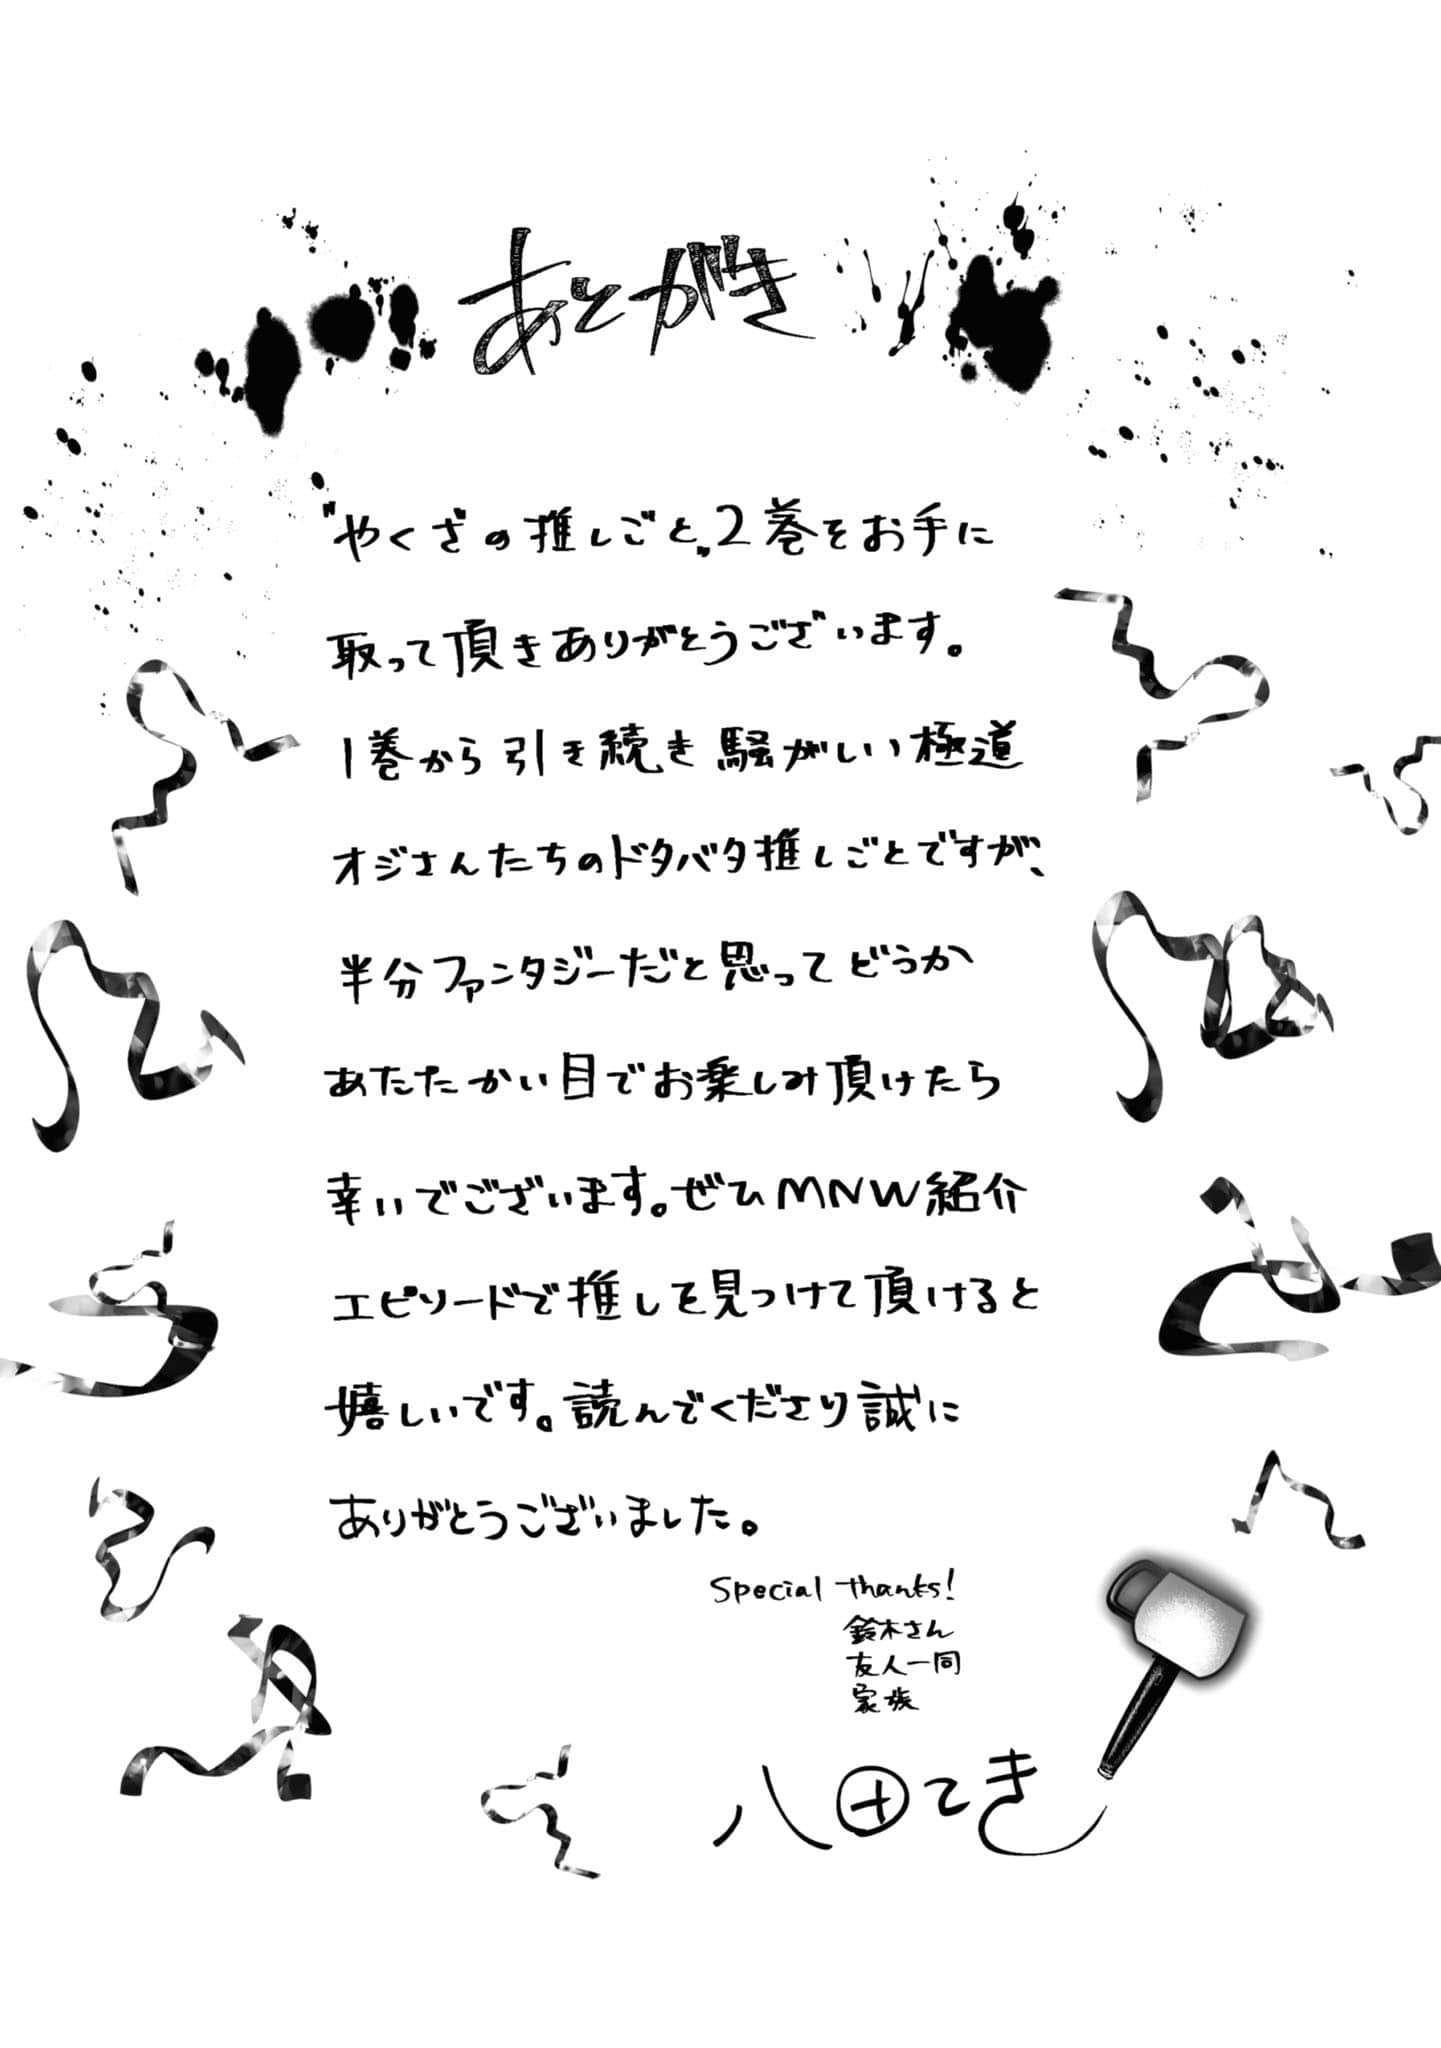 あとがき
〝やくざの推しごと〟2巻をお手に
取って頂きありがとうございます。
1巻から引き続き騒がしい極道
オジさんたちのドタバタ推しごとですが、
半分ファンタジーだと思ってどうか
あたたかい目でお楽しみ頂けたら
幸いでございます。ぜひMNW紹介
エピソードで推しを見つけて頂けると
嬉しいです。読んでくださり誠に
ありがとうございました。
Special thanks!
鈴木さん
友人一同
家族
八田てき